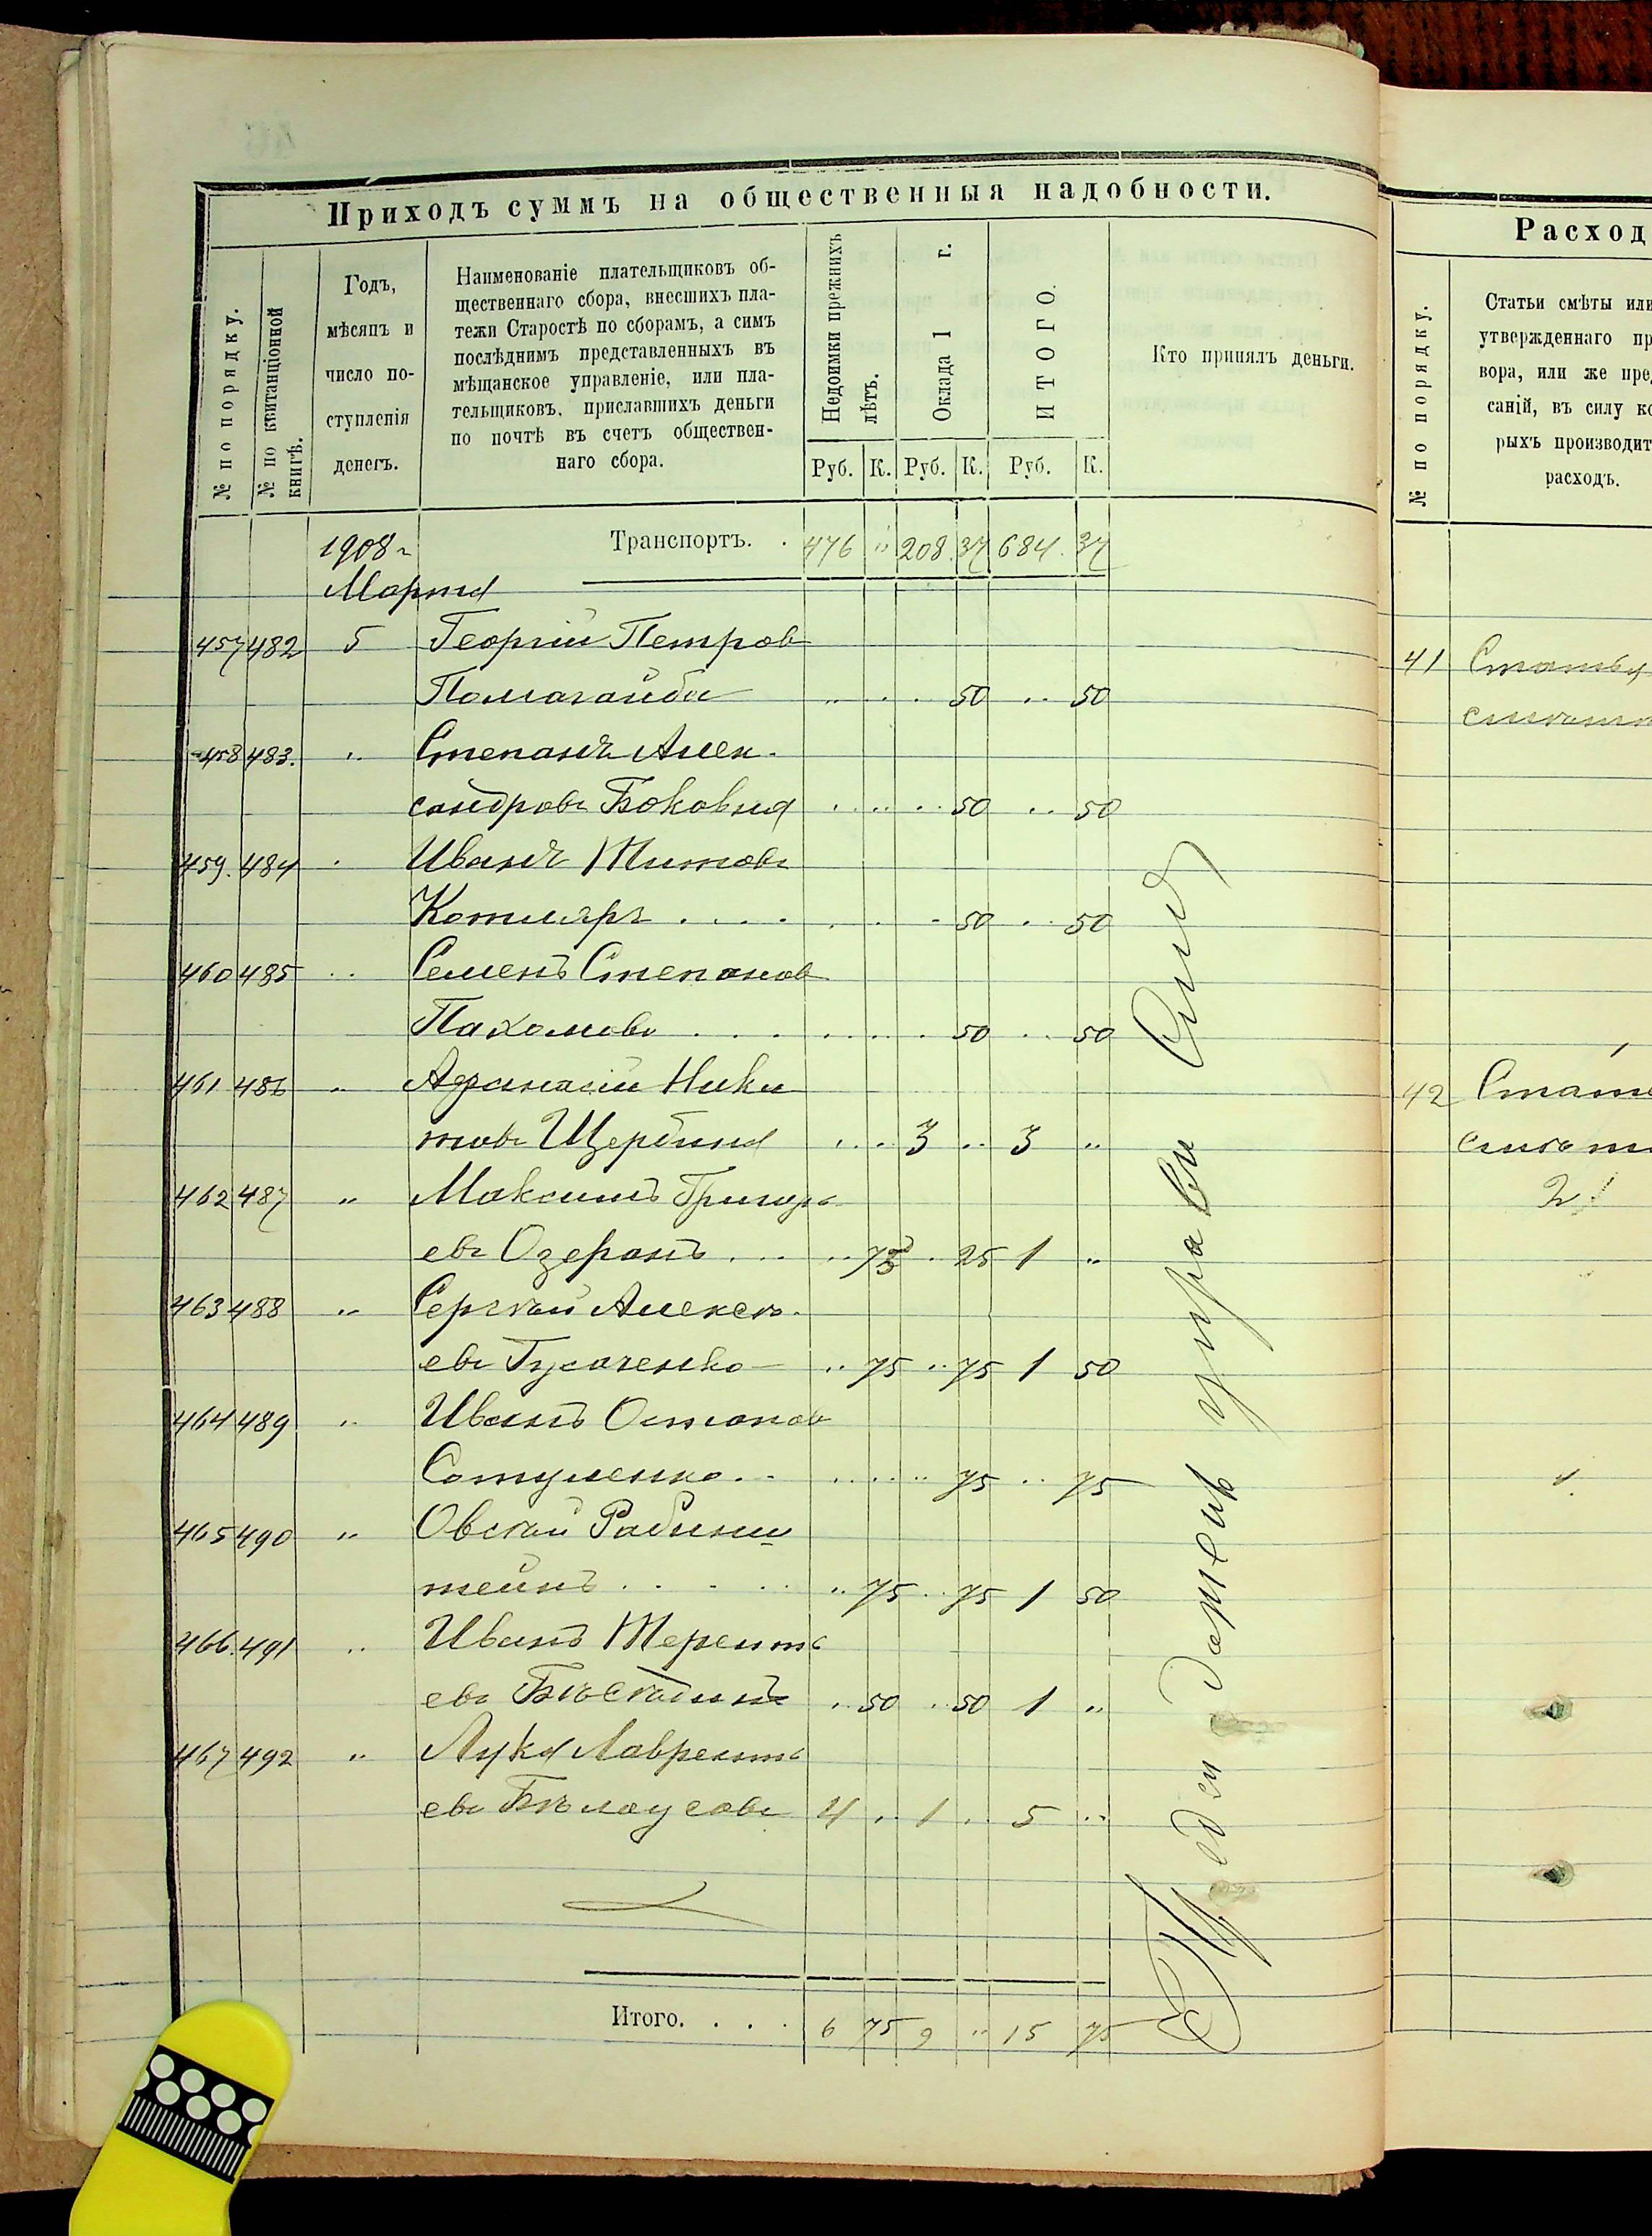 Приходъ суммъ на общественныя надобности.
№ по порядку.
№ по квитанціонной книгѣ.
Годъ,
мѣсяцъ и
число по-
ступленія
денегъ.
Наименованіе плательщиковъ об-
щественнаго сбора, внесшихъ пла-
тежи Старостѣ по сборамъ, а симъ
послѣднимъ представленныхъ въ
мѣщанское управленіе, или пла-
тельщиковъ, приславшихъ деньги
по почтѣ въ счетъ обществен-
наго сбора.
Недоимки прежнихъ лѣтъ.
Оклада 1 г.
ИТОГО.
Кто принялъ деньги.
Руб. К. Руб. К. Руб. К.
1908 г Транспортъ. . 476 " 208 37 684 37
Марта
457 482 5 Георгій Петров
50 50
458 483. " Степанъ Алек-
сандровъ Боковня 50 50
459. 484 " Иванъ Титовъ
Котляръ . . . . 50 50
460 485 " Семенъ Степанов
Пахомовъ . . . 50 50
461 486 " Афанасій Ники
товъ Щербина 3 " 3 "
462 487 " Максимъ Григорь
евъ Озеранъ . . . 75 25 1 "
463 488 " Сергѣй Алексѣ-
евъ Гусаченко 75 75 1 50
464 489 " Иванъ Остапов
75 75
465 490 " Овсѣй Рабинш
тейнъ . . . . 75 75 1 50
466. 491 " Иванъ Теренть
евъ 50 50 1 "
467 492 " Лука Лавренть
евъ Бѣлоусовъ 4 " 1 " 5 "
Итого. . . . 6 75 9 " 15 75
Предсѣдатель управы
Расход
№ по порядку.
Статьи смѣты или
утвержденнаго пр
вора, или же пред
саній, въ силу ко
рыхъ производит
расходъ.
41 Статья
42
2